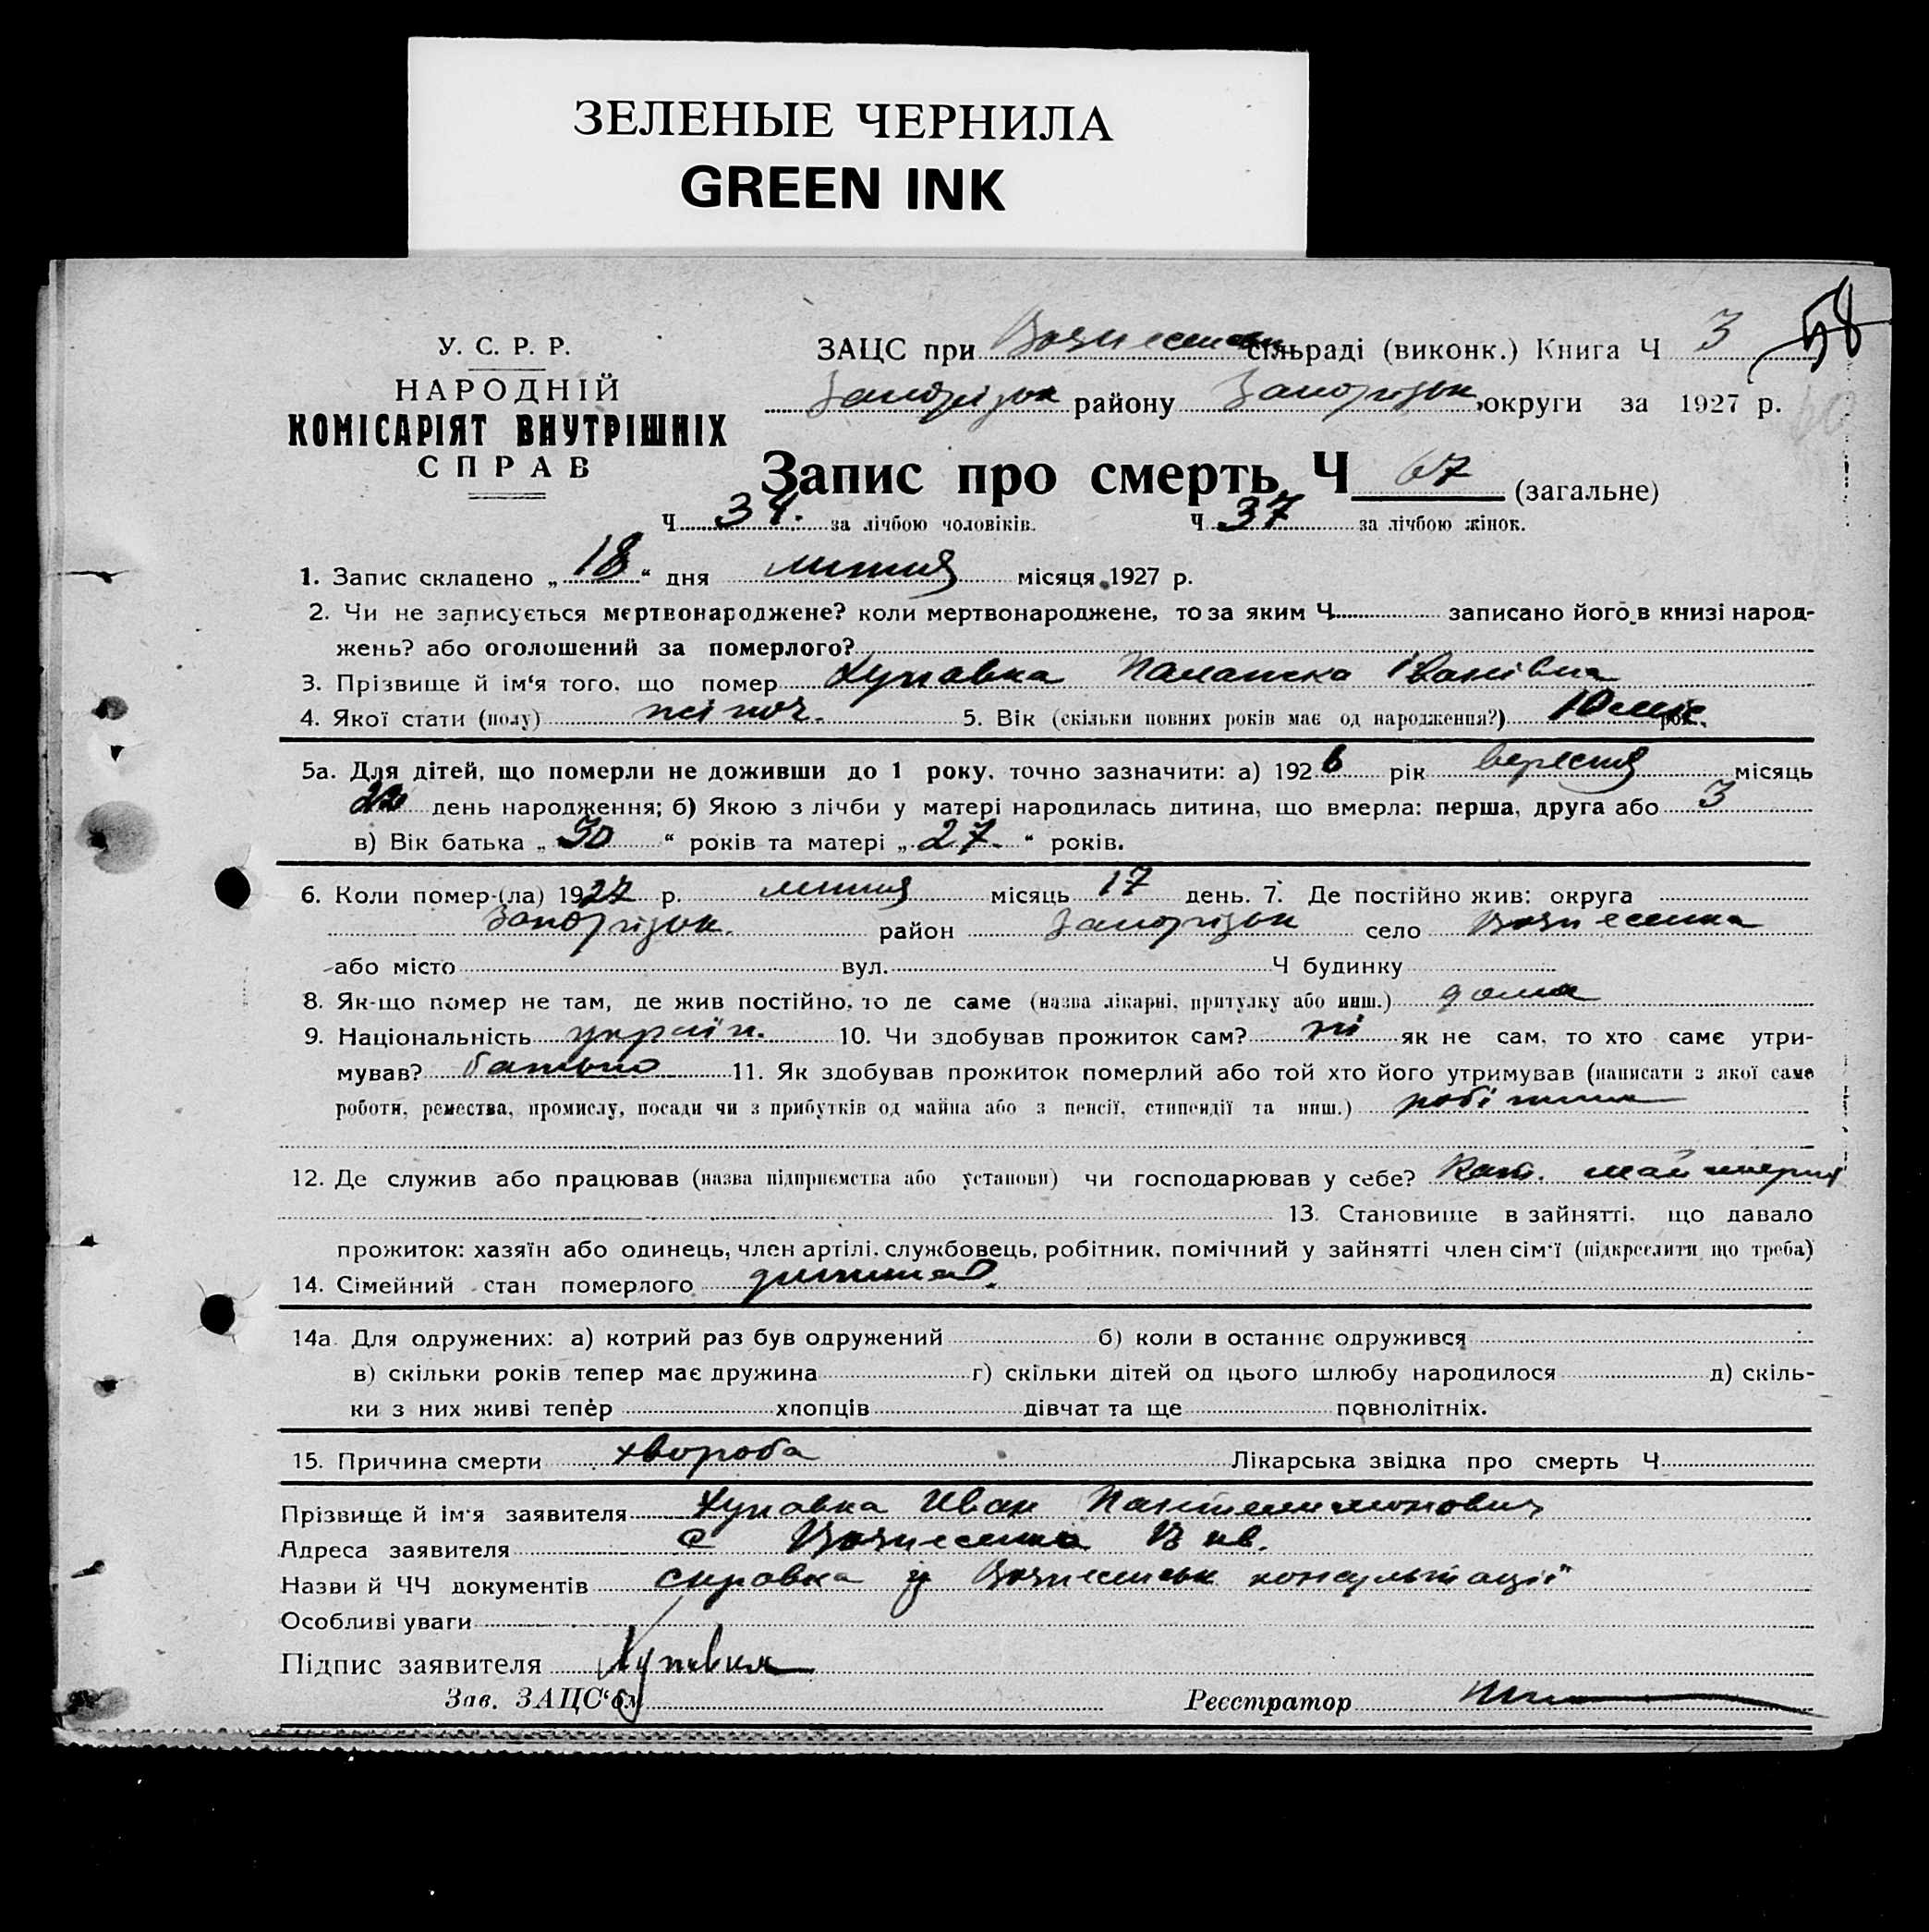 ЗЕЛЕНЫЕ ЧЕРНИЛА
GREEN INK
58
У. С. Р. Р.
НАРОДНІЙ
КОМІСАРІЯТ ВНУТРІШНІХ
СПРАВ
ЗАЦС при Вознесенськ сільраді (виконк.) Книга Ч 3
Запорізьк району Запорізьк округи за 1927 р.
Запис про смерть Ч 67 (загальне)
Ч 34. за лічбою чоловіків. Ч 37 за лічбою жінок.
1. Запис складено „ 18 “ дня липня місяця 1927 р.
2. Чи не записується мертвонароджене? коли мертвонароджене, то за яким Ч записано його в книзі народ-
жень? або оголошений за померлого?
3. Прізвище й ім‘я того, що помер Хупавка Палашка Іванівна
4. Якої стати (полу) жіноч. 5. Вік (скільки повних років має од народження?) 10 міс рок.
5а. Для дітей, що померли не доживши до 1 року, точно зазначити: а) 1926 рік вересня місяць
22 день народження; б) Якою з лічби у матері народилась дитина, що вмерла: перша, друга або 3
в) Вік батька „ 30 “ років та матері „ 27. “ років.
6. Коли помер-(ла) 1927 р. липня місяць 17 день. 7. Де постійно жив: округа
Запорізьк. район Запорізьк село Вознесенка
або місто вул. Ч будинку
8. Як-що помер не там, де жив постійно, то де саме (назва лікарні, притулку або инш.) дома
9. Національність україн. 10. Чи здобував прожиток сам? ні як не сам, то хто саме утри-
мував? батько 11. Як здобував прожиток померлий або той хто його утримував (написати з якої саме
роботи, ремества, промислу, посади чи з прибутків од майна або з пенсії, стипендії та инш.) робітник
12. Де служив або працював (назва підприємства або установи) чи господарював у себе? Кат. майстерня
13. Становище в зайнятті, що давало
прожиток: хазяїн або одинець, член артілі, службовець, робітник, помічний у зайнятті член сім‘ї (підкреслити що треба)
14. Сімейний стан померлого дитина.
14а. Для одружених: а) котрий раз був одружений б) коли в останнє одружився
в) скільки років тепер має дружина г) скільки дітей од цього шлюбу народилося д) скіль-
ки з них живі тепер хлопців дівчат та ще повнолітніх.
15. Причина смерти хвороба Лікарська звідка про смерть Ч
Прізвище й ім‘я заявителя Хупавка Иван Пантелимонович
Адреса заявителя с Вознесенка 13 кв.
Назви й ЧЧ документів справка з Вознесенськ консультації
Особливі уваги
Підпис заявителя Хупавка
Зав. ЗАЦС‘ом Реєстратор